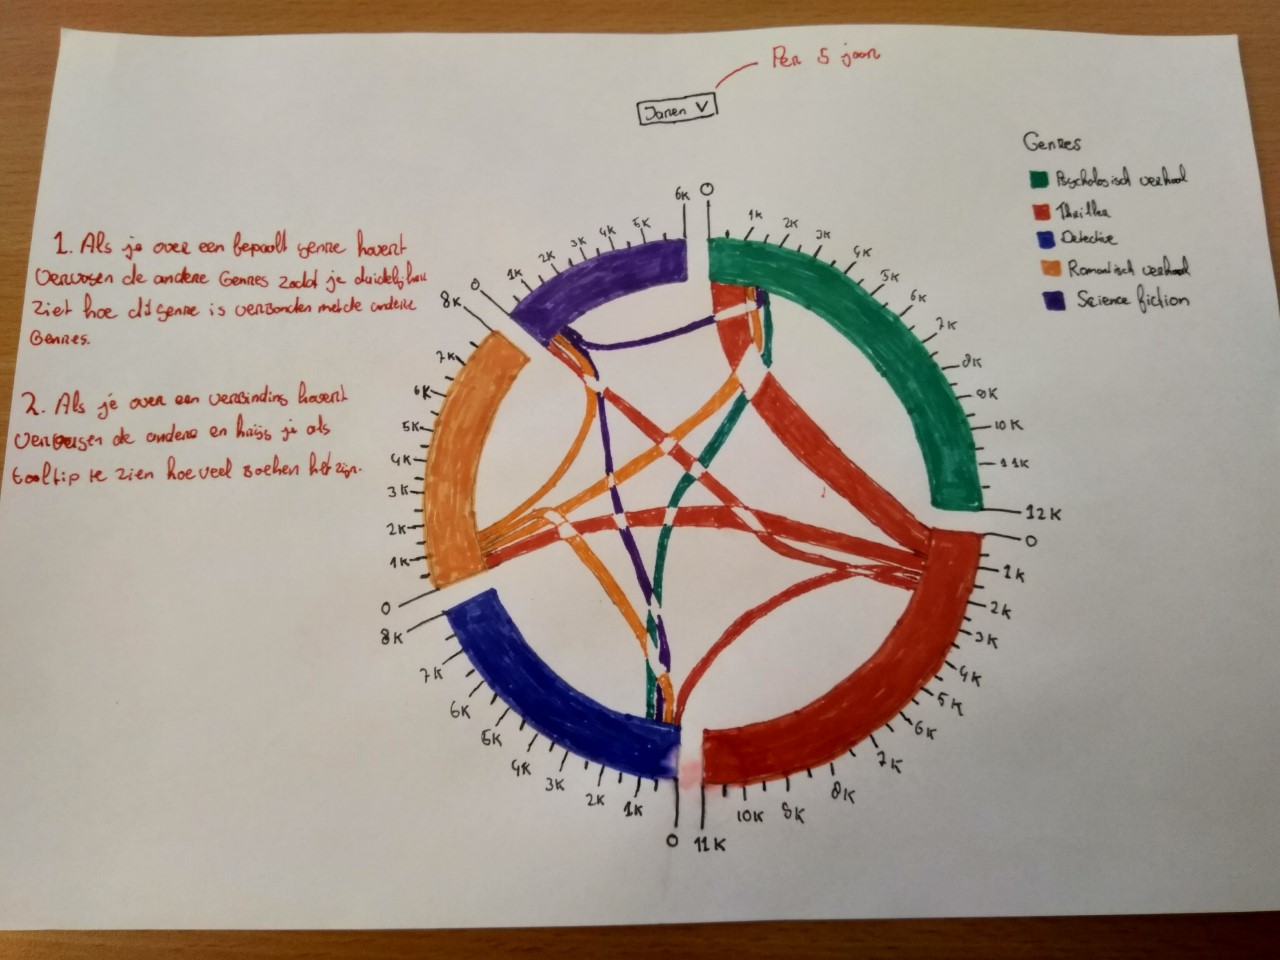 Per 5 jaar
Jaren V
Genres
Psychologisch verhaal
Thriller
Detective
Romantisch verhaal
Science fiction
1. Als je over een bepaalt genre hovert
verdwijnen de andere Genres zodat je duidelijker
ziet hoe dit genre is verbonden met de andere
Genres.
2. Als je over een verbinding hovert
verdwijnen de andere en krijg je als
tooltip te zien hoeveel boeken het zijn.
0
1K
2K
3K
4K
5K
6K
7K
8K
9K
10K
11K
12K
0
1K
2K
3K
4K
5K
6K
7K
8K
9K
10K
11K
0
1K
2K
3K
4K
5K
6K
7K
8K
0
1K
2K
3K
4K
5K
6K
7K
8K
0
1K
2K
3K
4K
5K
6K